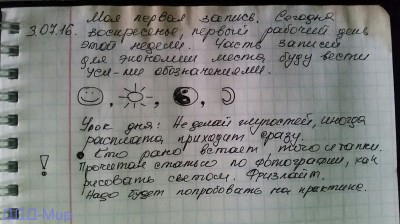 3.07.16. Моя первая запись. Сегодня
воскресенье, первый рабочий день
этой недели. Часть записи
для экономии места буду вести
усл-ми обозначениями.
Урок дня: Не делай глупостей, иногда
расплата приходит сразу.
• Кто рано встает того и тапки.
! Прочитал статью по фотографии, как
рисовать светом. Фризлайт.
Надо будет попробовать на практике.